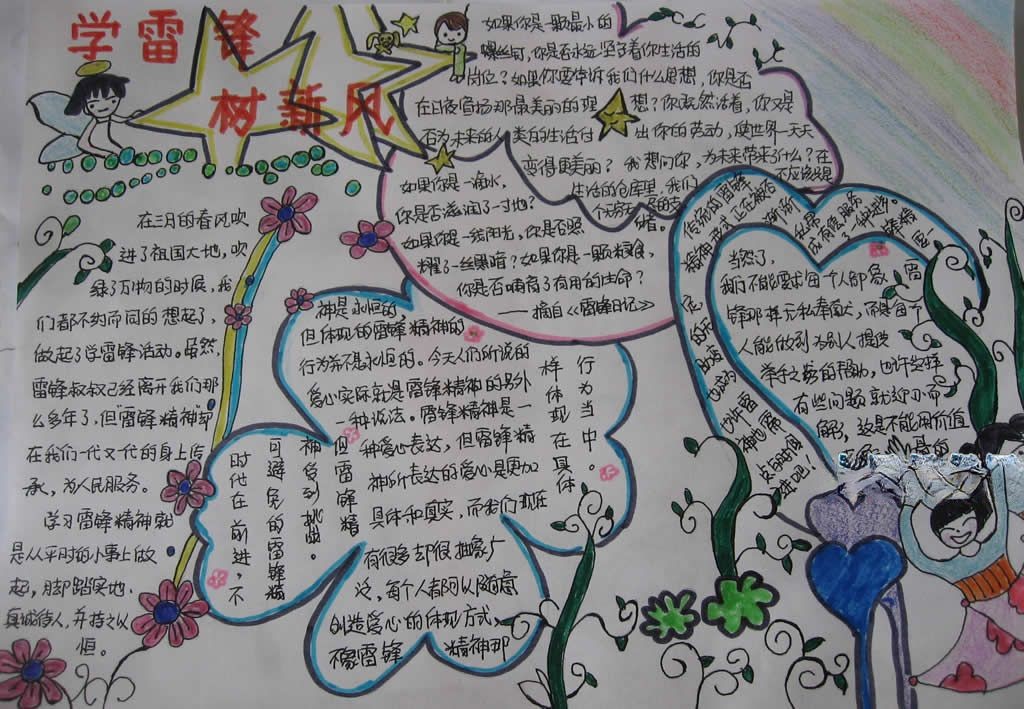 学雷锋
树新风
在三月的春风吹
进了祖国大地，吹
绿了万物的时候，我
们都不约而同的想起了，
做起了学雷锋活动。虽然，
雷锋叔叔已经离开我们那
么多年了，但"雷锋精神却
在我们一代又一代的身上传
承，为人民服务。
学习雷锋精神就
是从平时的小事上做
起，脚踏实地.
真诚待人，并持之以
恒。
如果你是一颗最小的
螺丝钉，你是否永远坚守着你生活的
岗位？如果你要告诉我们什么思想，你是否
在日夜宣扬那最美丽的理想？你既然活着，你又是
否为未来的人类的生活付出你的劳动，使世界一天天
变得更美丽？我想问你，为未来带来了什么？在
生活的仓库里，我们不应该只是
个无穷无尽的支
如果你是一滴水，
你是否滋润了一寸地？
如果你是一线阳光，你是否照
耀了一丝黑暗？如果你是一颗粮食，
你是否哺育了有用的生命？
——摘自《雷锋日记》
神是永恒的，
但体现的雷锋精神的
行为并不是永恒的。今天人们所说的
爱心实际就是雷锋精神的另外
一种说法。雷锋精神是一
种爱心表达，但雷锋精
神所表达的爱心是更加
具体和真实，而我们现在
有很多却很抽象广
泛，每个人都可以随意
创造爱心的体现方式，
不像雷锋精神那
样体现在具体
行为当中。
时代在前进，不
可避免的雷锋精
神受到挑战。
但雷锋精
传统的雷锋
精神
正在被
当然了，
我们不能要求每个人都象雷
锋那样无私奉献，而是每个
人能做到为别人提供
举手之劳的帮助，也许这样
有些问题就迎刃而
解，这是不能用价值